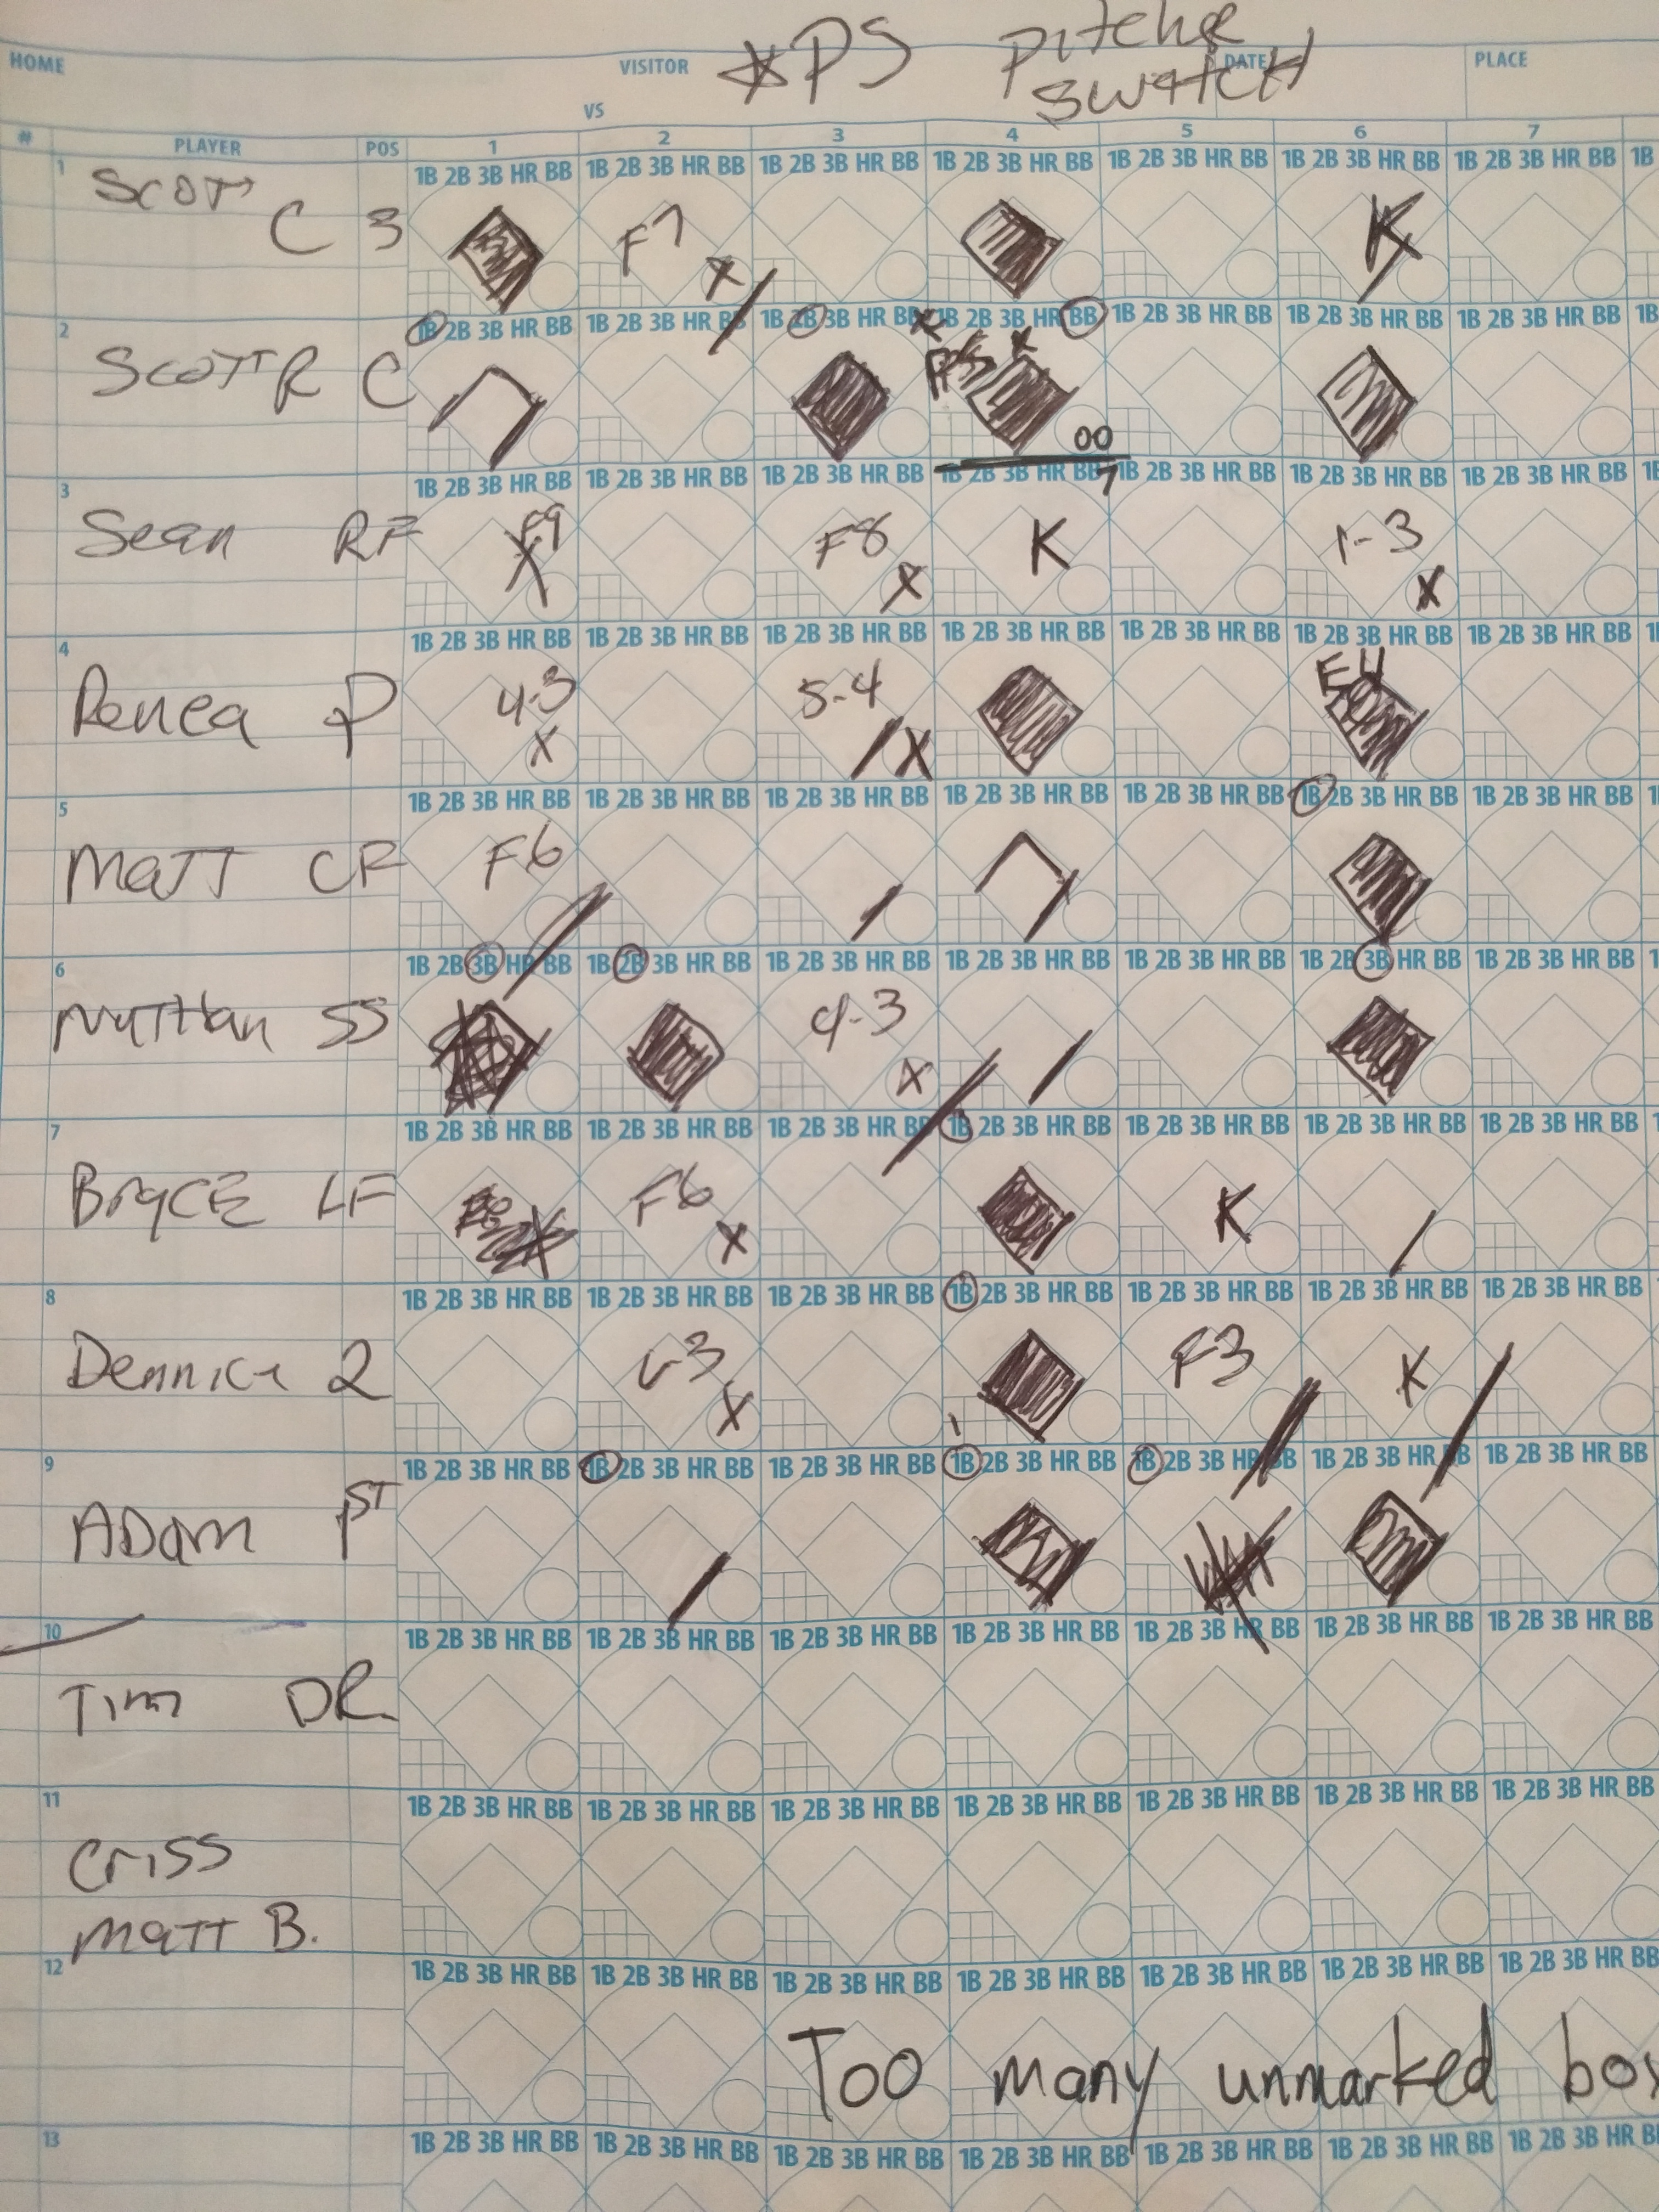 *PS Pitcher
Switch
HOME VISITOR DATE PLACE
VS
# PLAYER POS 1 2 3 4 5 6 7
1 1B 2B 3B HR BB 1B 2B 3B HR BB 1B 2B 3B HR BB 1B 2B 3B HR BB 1B 2B 3B HR BB 1B 2B 3B HR BB 1B 2B 3B HR BB 1B
SCOTT C 3 F7 X K
2 1B 2B 3B HR BB 1B 2B 3B HR BB 1B 2B 3B HR BB 1B 2B 3B HR BB 1B 2B 3B HR BB 1B 2B 3B HR BB 1B 2B 3B HR BB 1B
SCOTT R C 00
3 1B 2B 3B HR BB 1B 2B 3B HR BB 1B 2B 3B HR BB 1B 2B 3B HR BB 1B 2B 3B HR BB 1B 2B 3B HR BB 1B 2B 3B HR BB 1B
Sean RF F9 X F8 X K 1-3 X
4 1B 2B 3B HR BB 1B 2B 3B HR BB 1B 2B 3B HR BB 1B 2B 3B HR BB 1B 2B 3B HR BB 1B 2B 3B HR BB 1B 2B 3B HR BB
Renea P 4-3 X 5-4 X E4
5 1B 2B 3B HR BB 1B 2B 3B HR BB 1B 2B 3B HR BB 1B 2B 3B HR BB 1B 2B 3B HR BB 1B 2B 3B HR BB 1B 2B 3B HR BB
MaTT CF F6
6 1B 2B 3B HR BB 1B 2B 3B HR BB 1B 2B 3B HR BB 1B 2B 3B HR BB 1B 2B 3B HR BB 1B 2B 3B HR BB 1B 2B 3B HR BB
NaTHan SS 4-3 X
7 1B 2B 3B HR BB 1B 2B 3B HR BB 1B 2B 3B HR BB 1B 2B 3B HR BB 1B 2B 3B HR BB 1B 2B 3B HR BB 1B 2B 3B HR BB
BryCE LF F6 X K
8 1B 2B 3B HR BB 1B 2B 3B HR BB 1B 2B 3B HR BB 1B 2B 3B HR BB 1B 2B 3B HR BB 1B 2B 3B HR BB 1B 2B 3B HR BB
2 X F3 K
9 1B 2B 3B HR BB 1B 2B 3B HR BB 1B 2B 3B HR BB 1B 2B 3B HR BB 1B 2B 3B HR BB 1B 2B 3B HR BB 1B 2B 3B HR BB
ADam 1ST
10 1B 2B 3B HR BB 1B 2B 3B HR BB 1B 2B 3B HR BB 1B 2B 3B HR BB 1B 2B 3B HR BB 1B 2B 3B HR BB 1B 2B 3B HR BB
Tim DR
11 1B 2B 3B HR BB 1B 2B 3B HR BB 1B 2B 3B HR BB 1B 2B 3B HR BB 1B 2B 3B HR BB 1B 2B 3B HR BB 1B 2B 3B HR BB
Criss
MaTT B.
12 1B 2B 3B HR BB 1B 2B 3B HR BB 1B 2B 3B HR BB 1B 2B 3B HR BB 1B 2B 3B HR BB 1B 2B 3B HR BB 1B 2B 3B HR BB
Too many unmarked box
13 1B 2B 3B HR BB 1B 2B 3B HR BB 1B 2B 3B HR BB 1B 2B 3B HR BB 1B 2B 3B HR BB 1B 2B 3B HR BB 1B 2B 3B HR BB